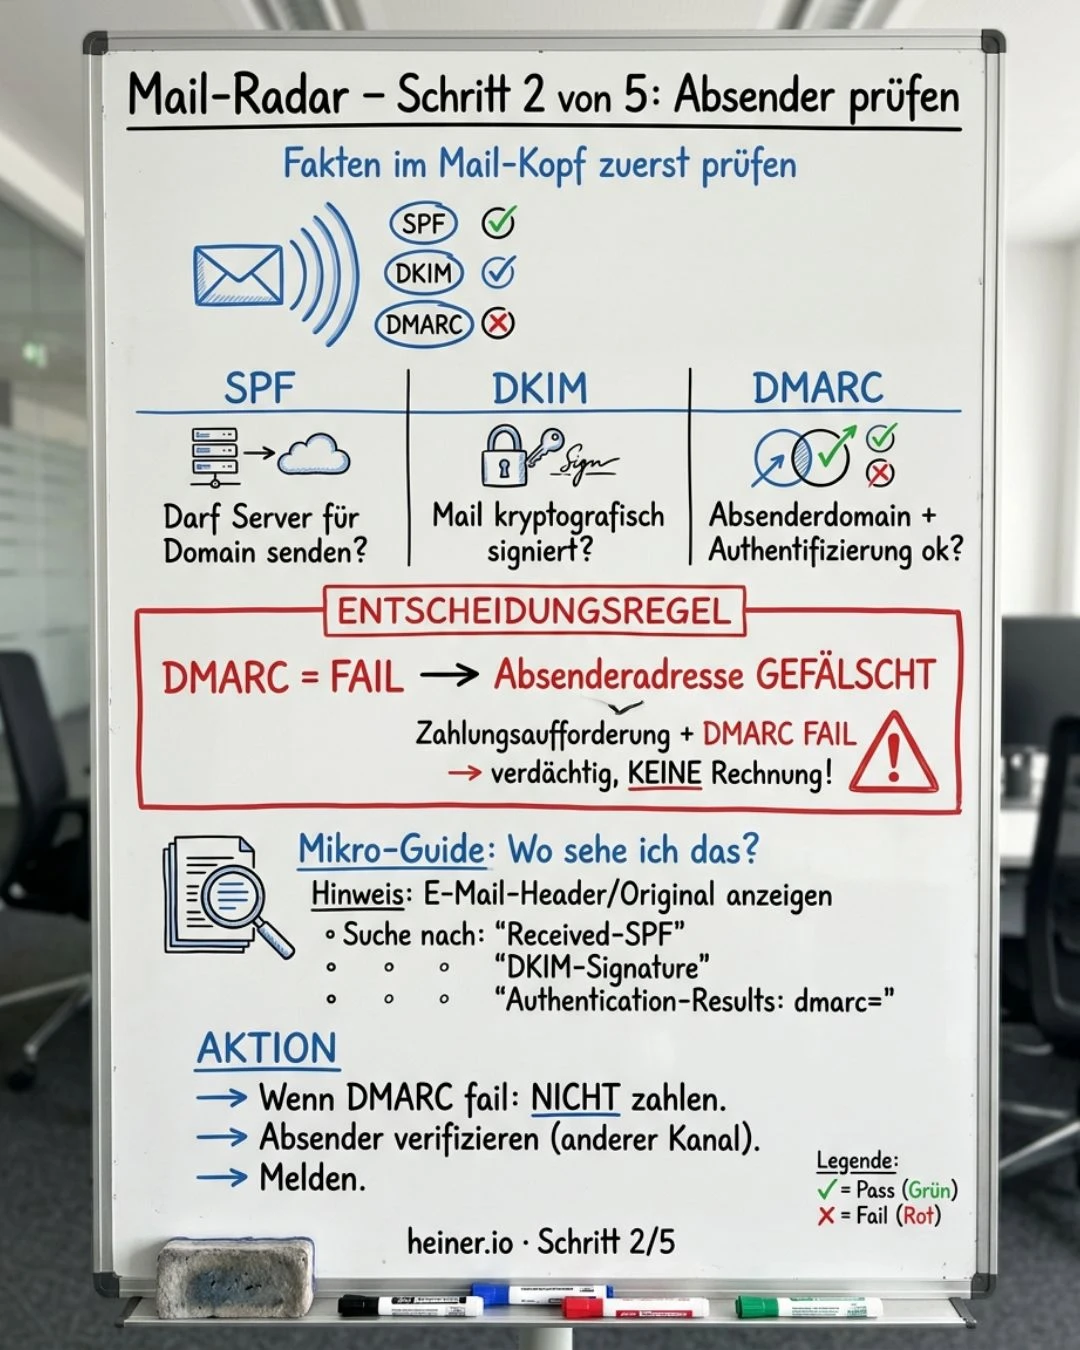 Mail-Radar – Schritt 2 von 5: Absender prüfen
Fakten im Mail-Kopf zuerst prüfen
SPF
DKIM
DMARC
SPF
Darf Server für
Domain senden?
DKIM
Sign
Mail kryptografisch
signiert?
DMARC
Absenderdomain +
Authentifizierung ok?
ENTSCHEIDUNGSREGEL
DMARC = FAIL → Absenderadresse GEFÄLSCHT
Zahlungsaufforderung + DMARC FAIL
→ verdächtig, KEINE Rechnung!
Mikro-Guide: Wo sehe ich das?
Hinweis: E-Mail-Header/Original anzeigen
∘ Suche nach: "Received-SPF"
∘ ∘ ∘ "DKIM-Signature"
∘ ∘ ∘ "Authentication-Results: dmarc="
AKTION
→ Wenn DMARC fail: NICHT zahlen.
→ Absender verifizieren (anderer Kanal).
→ Melden.
Legende:
✓ = Pass (Grün)
✗ = Fail (Rot)
heiner.io · Schritt 2/5